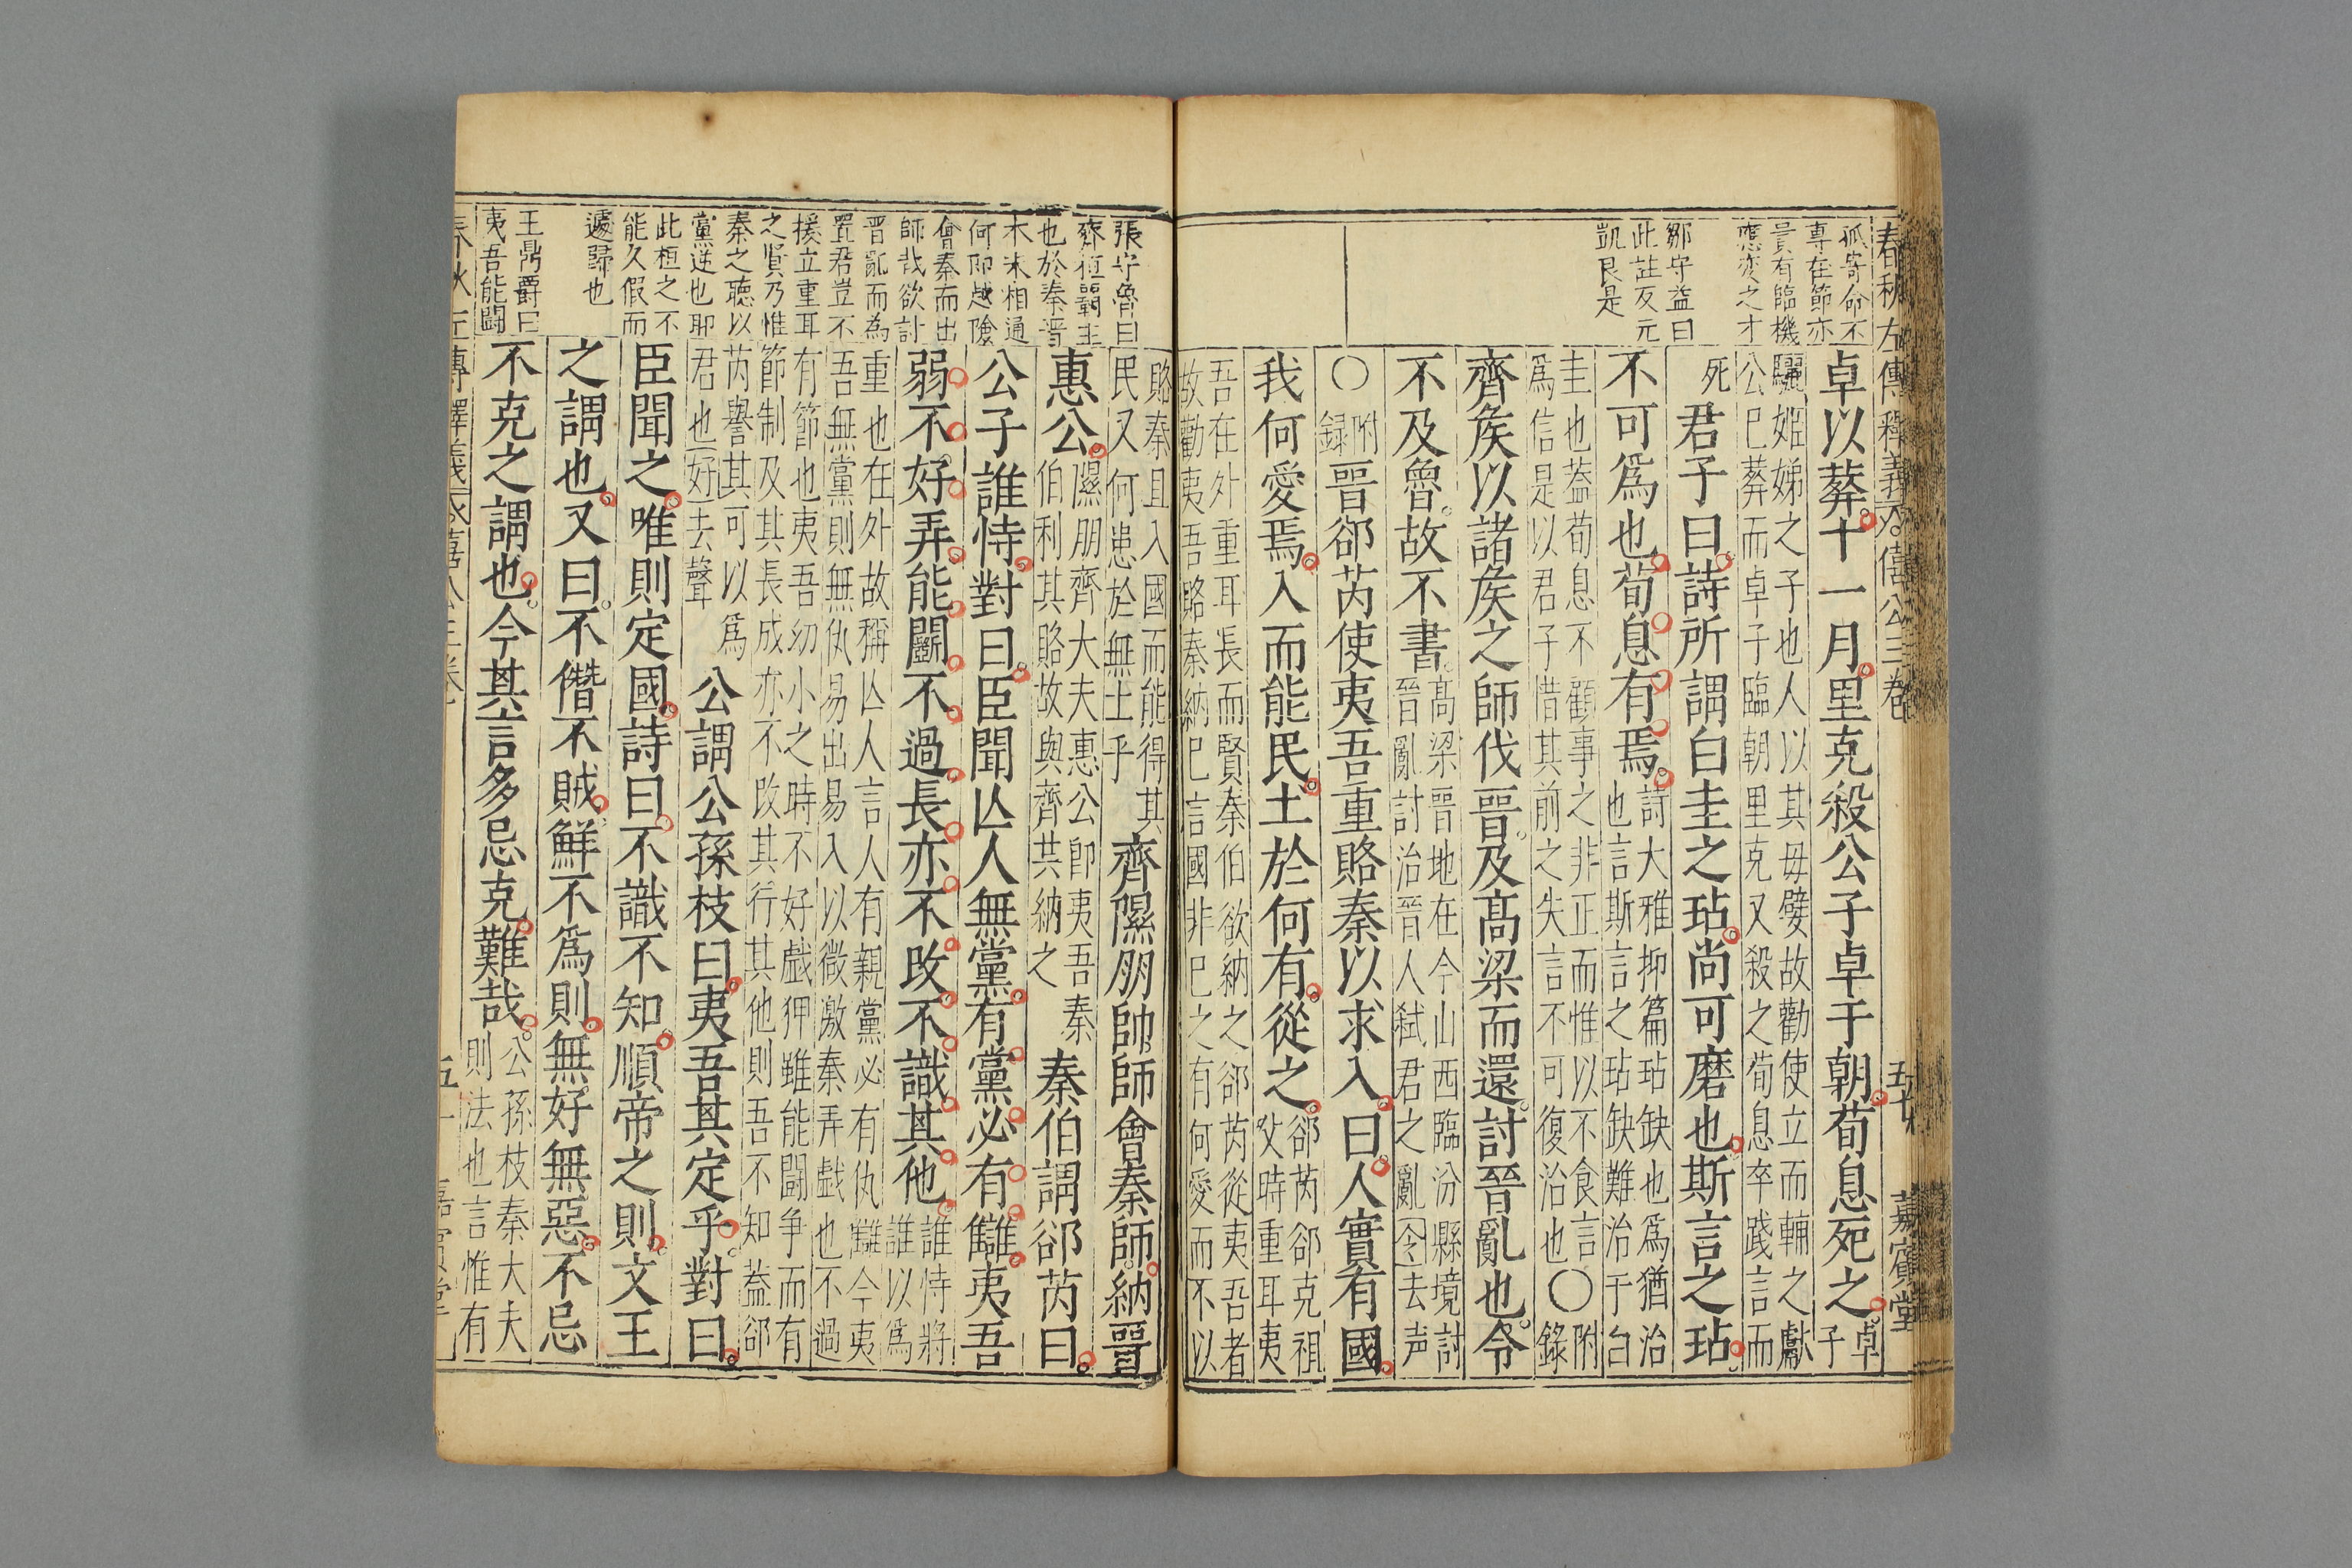 春秋左傳釋義 僖公三卷 五十 嘉賓堂
孤寄命不
專在節亦
貴有臨機
應變之才
鄒守益曰
此註反元
凱艮是
卓以葬十一月里克殺公子卓于朝荀息死之卓子
驪姬娣之子也人以其毋嬖故勸使立而輔之獻
公巳葬而卓子臨朝里克又殺之荀息卒踐言而
死君子曰詩所謂白圭之玷尚可磨也斯言之玷
不可爲也荀息有焉
詩大雅抑篇玷缺也爲猶治
也言斯言之玷缺難治于白
圭也葢荀息不顧事之非正而惟以不食言〇附
爲信是以君子惜其前之失言不可復治也 錄
齊矦以諸矦之師伐晉及高梁而還討晉亂也令
不及魯故不書
高梁晉地在今山西臨汾縣境討
晉亂討治晉人弒君之亂令去声
〇附録晉郤芮使夷吾重賂秦以求入曰人實有國
我何愛焉入而能民土於何有從之
郤芮郤克祖
父時重耳夷
吾在外重耳長而賢秦伯欲納之郤芮從夷吾者
故勸夷吾賂秦納巳言國非巳之有何愛而不以
張守魯曰
齊桓覇主
也於秦晉
木末相通
何即越險
會秦而出
師哉欲討
晉亂而為
置君豈不
援立重耳
之賢乃惟
秦之聽以
黨逆也耶
此桓之不
能久假而
遽歸也
王鼎爵曰
夷吾能闘
賂秦且入國而能得其
民又何患於無土乎
齊隰朋帥師會秦師納晉
惠公
隰朋齊大夫惠公卽夷吾秦
伯利其賂故與齊共納之
秦伯謂郤芮曰
公子誰恃對曰臣聞亾人無黨有黨必有讎夷吾
弱不好弄能鬭不過長亦不改不識其他
誰恃將
誰以爲
重也在外故稱亾人言人有親黨必有仇讎今夷
吾無黨則無仇易出易入以微激秦弄戲也不過
有節也夷吾幼小之時不好戲狎雖能闘争而有
節制及其長成亦不改其行其他則吾不知葢郤
芮譽其可以爲
君也好去聲
公謂公孫枝曰夷吾其定乎對曰
臣聞之唯則定國詩曰不識不知順帝之則文王
之謂也又曰不僭不賊鮮不爲則無好無惡不忌
不克之謂也今其言多忌克難哉
公孫枝秦大夫
則法也言惟有